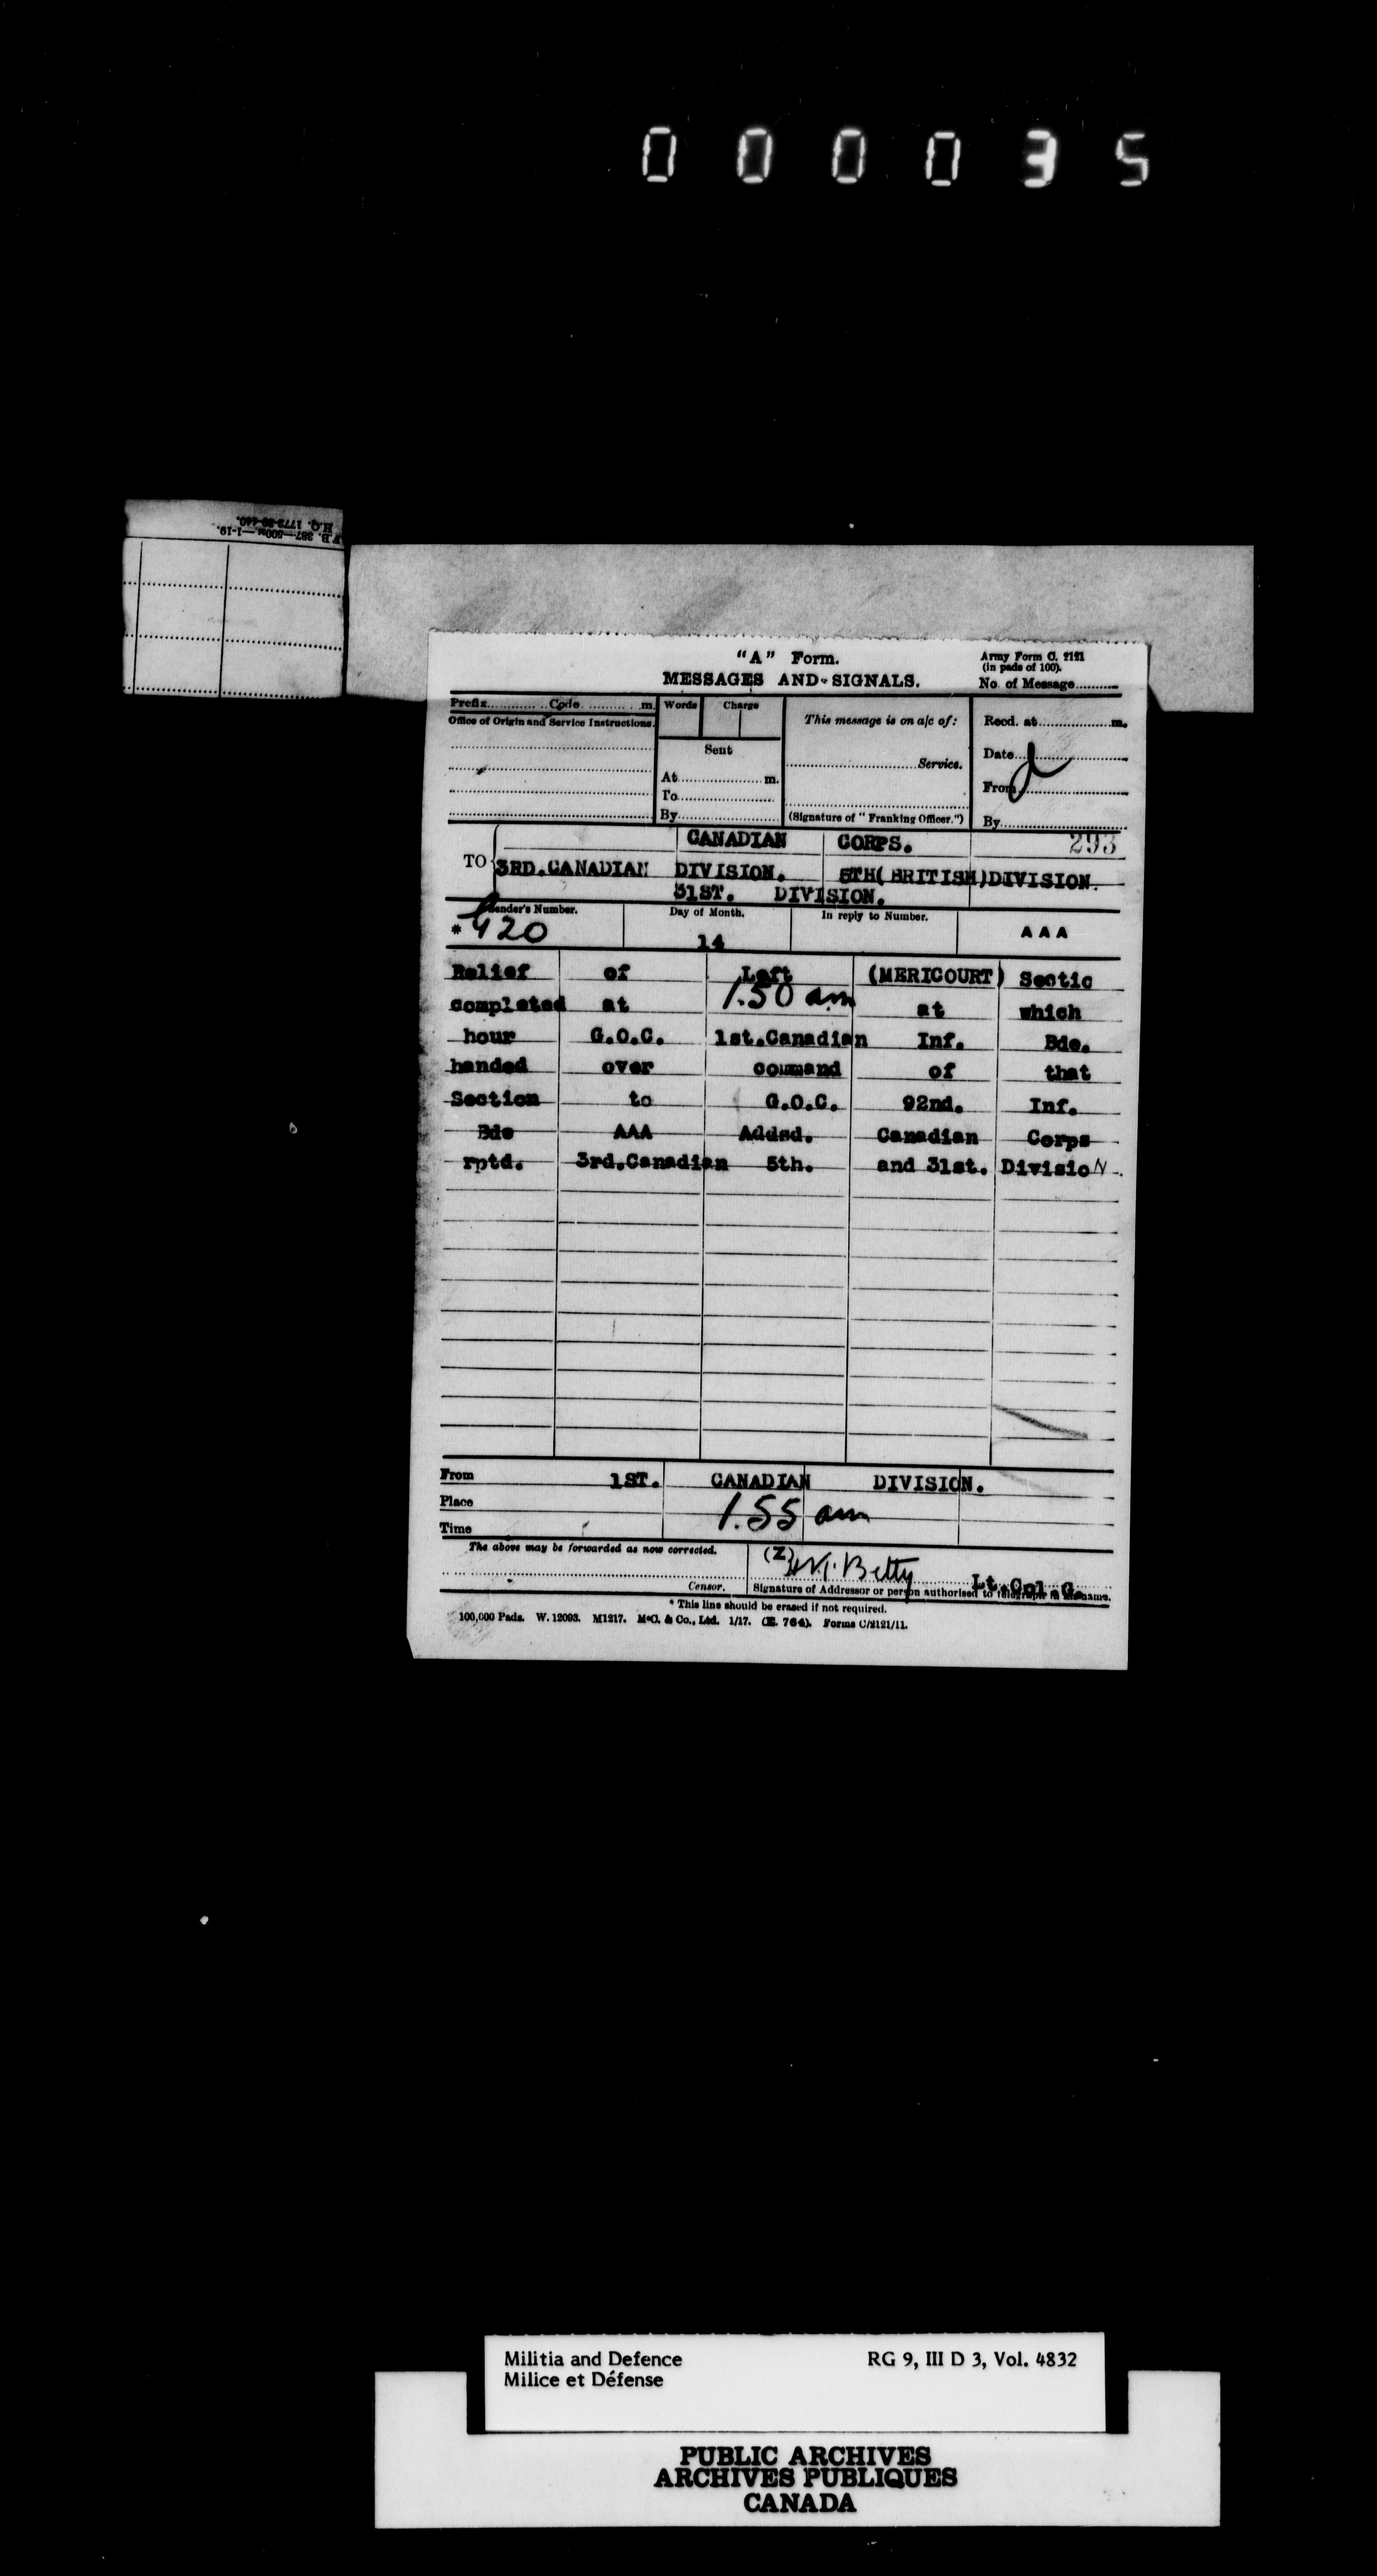 000035
H.Q. 1772-39-440.
F.B. 387—500M.—1-19.
"A" Form.
Army Form C. 2121
(in pads of 100).
MESSAGES AND SIGNALS.
No. of Message..........
Prefix............ Code..............m.
Words
Charge
This message is on a/c of:
Recd. at..................m.
Office of Origin and Service Instructions.
Sent
Date
..............................Service.
At.....................m.
From
To.......................
By.......................
(Signature of "Franking Officer.")
By
CANADIAN CORPS.
293
TO 3RD.CANADIAN DIVISION. 5TH(BRITISH)DIVISION.
31ST. DIVISION.
Sender's Number.
Day of Month.
In reply to Number.
AAA
* 920
14
Relief of Left (MERICOURT) Sectio
completed at 1.50 am at which
hour G.O.C. 1st.Canadian Inf. Bde.
handed over command of that
Section to G.O.C. 92nd. Inf.
Bde AAA Addsd. Canadian Corps
rptd. 3rd.Canadian 5th. and 31st. DivisioN.
From 1ST. CANADIAN DIVISION.
Place
Time 1.55 am
The above may be forwarded as now corrected.
(Z)
Betty
Lt.Col.G.
Censor.
Signature of Addressor or person authorised to telegraph in his name.
* This line should be erased if not required.
100,000 Pads. W. 12093. M1217. McC. & Co., Ltd. 1/17. (E. 764). Forms C/2121/11.
Militia and Defence
RG 9, III D 3, Vol. 4832
Milice et Défense
PUBLIC ARCHIVES
ARCHIVES PUBLIQUES
CANADA